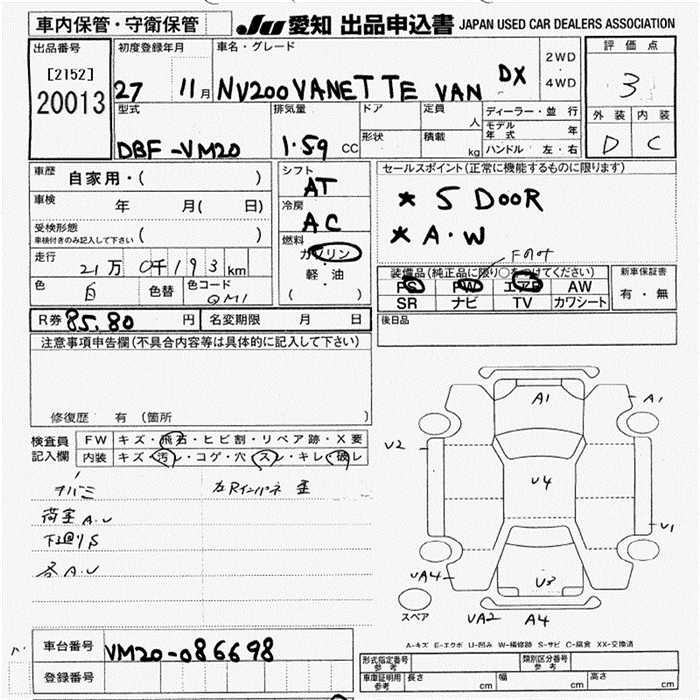 車内保管・守衛保管 JU 愛知 出品申込書 JAPAN USED CAR DEALERS ASSOCIATION
出品番号 初度登録年月 車名・グレード 評価点
[2152] 2WD
20013 27 11月 NV200VANETTE VAN DX 4WD 3
型式 排気量 ドア 定員 人 ディーラー・並行 外装 内装
モデル年式 年
DBF-VM20 1.59 CC 形状 積載 kg ハンドル 左・右 D C
車歴 自家用・( ) シフト AT セールスポイント(正常に機能するものに限ります)
車検 年 月( 日) 冷房 AC * 5 DOOR
受検形態 車検付きのみ記入して下さい ( ) 燃料 ガソリン * A・W
走行 21万 0千193km 軽油 Fのみ
( ・ ) 装備品(純正品に限り○をつけてください) 新車保証書
色 白 色替 色コード QM1 PS PW エアB AW 有・無
SR ナビ TV カワシート
R券 85.80 円 名変期限 月 日 後日品
注意事項申告欄(不具合内容等は具体的に記入して下さい)
修復歴 有 (箇所 )
検査員記入欄 FW キズ・飛石・ヒビ割・リペア跡・X要
内装 キズ・汚レ・コゲ・穴・スレ・キレ・破レ
荷室 A.U
下廻りS
各A.U
A1 A1
U2
U4
U1
UA4 U3
スペア UA2 A4
A-キズ E-エクボ U-凹み W-補修跡 S-サビ C-腐食 XX-交換済
車台番号 VM20-086698
登録番号
形式指定番号 参考 類別区分番号 参考
車庫証明用 参考 長さ cm 幅 cm 高さ cm